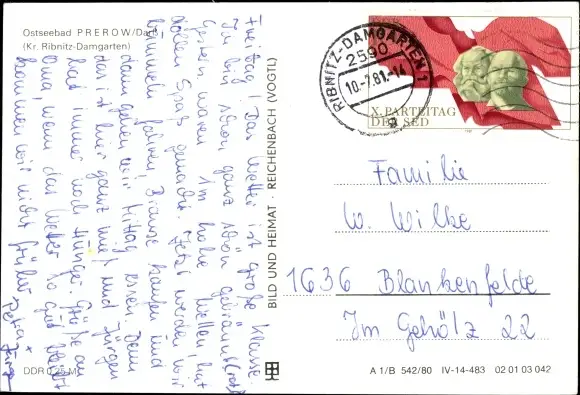 Ostseebad PREROW/Darß
(Kr. Ribnitz-Damgarten)
Freitag! Das Wetter ist große Klasse
Ich bin schon ganz schön gebräunt (rot)
Gestern waren 1m hohe Wellen, hat
vollen Spaß gemacht. Jetzt werden wir
bummeln fahren, Brause kaufen und
dann gehen wir Mittag essen. Denn
das ist hier ganz und Jürgen
hat immer noch Hunger. Grüße an
Oma, wenn das Wetter so gut bleibt
kommen wir nicht früher
Petra +
Jürgen
DDR 0,25 M
BILD UND HEIMAT · REICHENBACH (VOGTL)
RIBNITZ-DAMGARTEN 1
2590
10.-7.81.-14
X. PARTEITAG
DER SED
Familie
W. Wilke
1636 Blankenfelde
Im Gehölz 22
A 1/B 542/80 IV-14-483 02 01 03 042